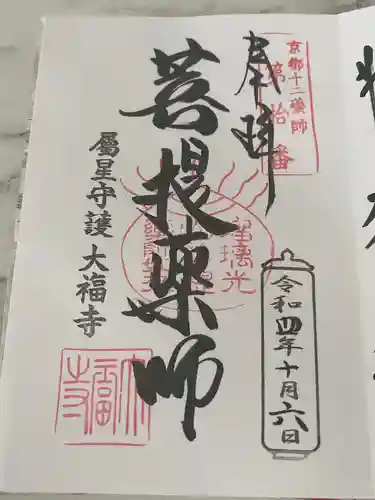 京都十二薬師
第拾番
奉拝
令和四年十月六日
菩提薬師
屬星守護 大福寺
大福寺